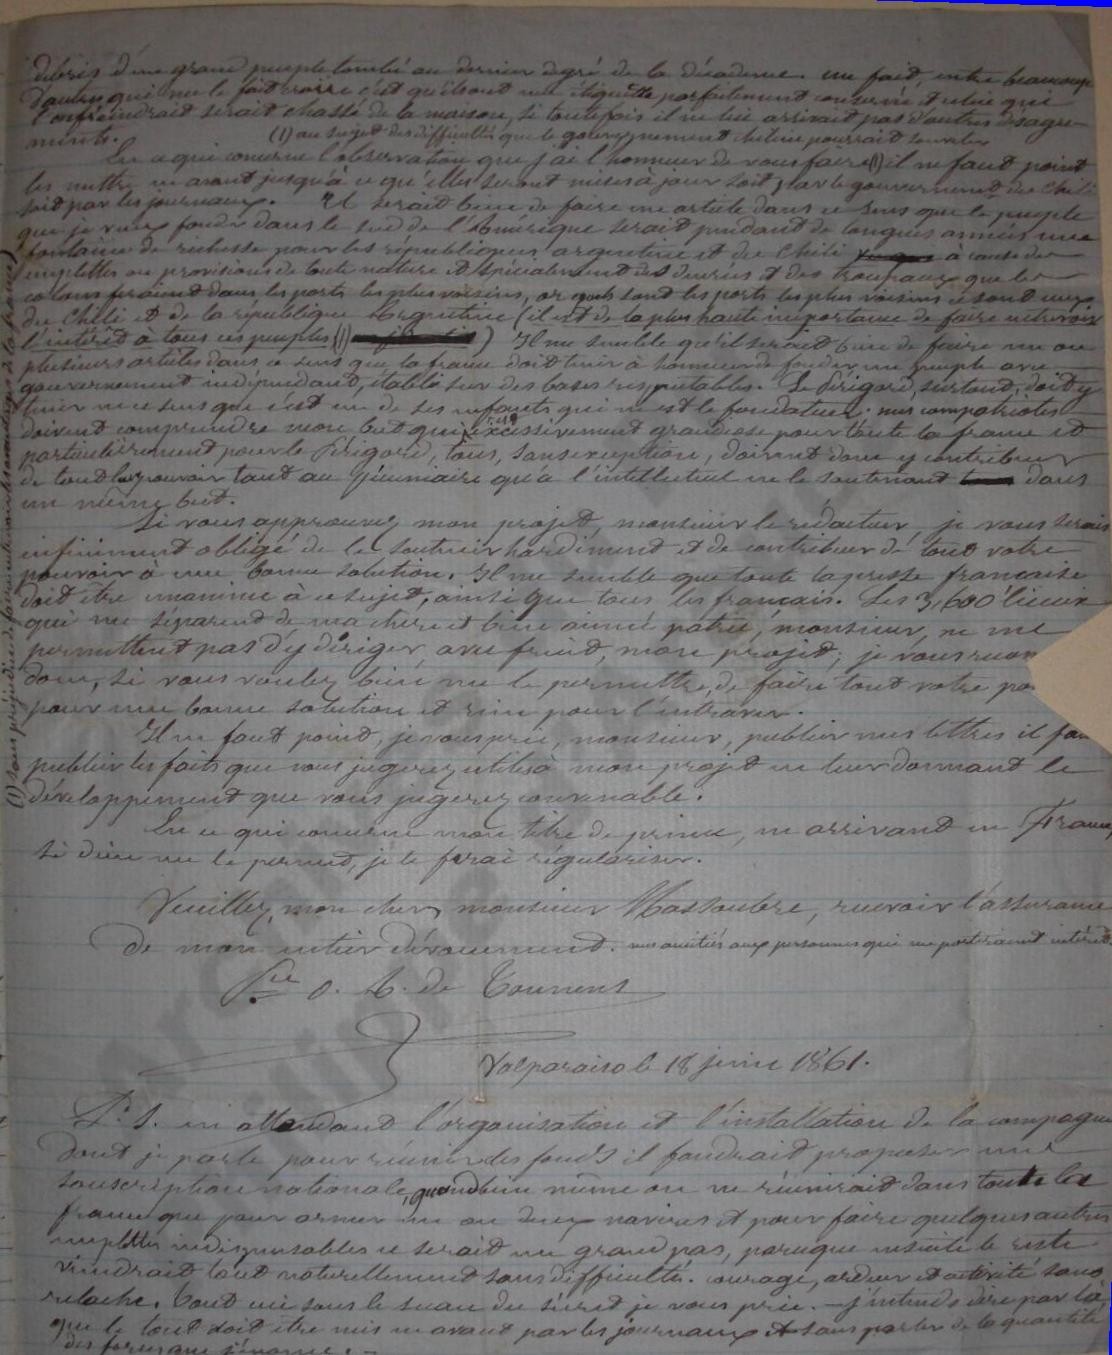 débris d'un grand peuple tombé au dernier degré de la décadence. un fait, entre beaucoup
d'autres qui me le fait croire c'est qu'ils ont une étiquette parfaitement conservée et celui qui
l'enfreindrait serait chassé de la maison, si toutefois il ne lui arrivait pas d'autres désagré-
ments.
(1) au sujet des difficultés que le gouvernement chilien pourrait soulever
En ce qui concerne l'observation que j'ai l'honneur de vous faire (1) il ne faut point
les mettre en avant jusqu'à ce qu'elles seront mises à jour soit par le gouvernement du Chili
soit par les journaux. Il serait bien de faire un article dans ce sens que le peuple
que je veux fonder dans le sud de l'Amérique serait pendant de longues années une
fontaine de richesse pour les républiques argentine et du Chili à cause des
emplettes ou provisions de toute nature et spécialement des denrées et des troupeaux que les
colons feraient dans les ports les plus voisins, or quels sont les ports les plus voisins ce sont ceux
du Chili et de la république Argentine (il est de la plus haute importance de faire entrevoir
l'intérêt à tous ces peuples (1) ) Il me semble qu'il serait bien de faire un ou
plusieurs articles dans ce sens que la france doit tenir à honneur de fonder un peuple avec
gouvernement indépendant, établi sur des bases respectables. Le Périgord, surtout, doit y
tenir en ce sens que c'est un de ses enfants qui en est le fondateur. mes compatriotes
doivent comprendre mon but qui est excessivement grandiose pour toute la france et
particulièrement pour le Périgord, tous, sans exception, doivent donc y contribuer
de tout leur pouvoir tant au pécuniaire qu'à l'intellectuel en le soutenant dans
un même but.
Si vous approuvez mon projet, monsieur le rédacteur, je vous serais
infiniment obligé de le soutenir hardiment et de contribuer de tout votre
pouvoir à une bonne solution. Il me semble que toute la presse française
doit être unanime à ce sujet, ainsi que tous les français. Les 3,600 lieues
qui me séparent de ma chère et bien aimée patrie, monsieur, ne me
permettent pas d'y diriger, avec fruit, mon projet; je vous
donc, si vous voulez bien me le permettre, de faire tout votre
pour une bonne solution et rien pour l'entraver.
Il ne faut point, je vous prie, monsieur, publier mes lettres il
publier les faits que vous jugerez utiles à mon projet en leur donnant le
développement que vous jugerez convenable.
En ce qui concerne mon titre de prince, en arrivant en France,
si dieu me le permet, je le ferai régulariser.
Veuillez, mon cher monsieur Massoubre, recevoir l'assurance
de mon entier dévouement. mes amitiés aux personnes qui me porteraient intérêt.
Pce O. A. de Tounens
Valparaiso le 18 juin 1861.
P. S. en attendant l'organisation et l'installation de la compagnie
dont je parle pour réunir des fonds il faudrait proposer une
souscription nationale, quand bien même on ne réunirait dans toute la
france que pour armer un ou deux navires et pour faire quelques autres
emplettes indispensables ce serait un grand pas, parce que ensuite le reste
viendrait tout naturellement sans difficulté. courage, ardeur et activité sans
relache. tout ceci sous le sceau du secret je vous prie. — j'entends dire par là
que le tout doit être mis en avant par les journaux et sans parler de la quantité
(1) sans préjudice de faire entrevoir les avantages de la france)